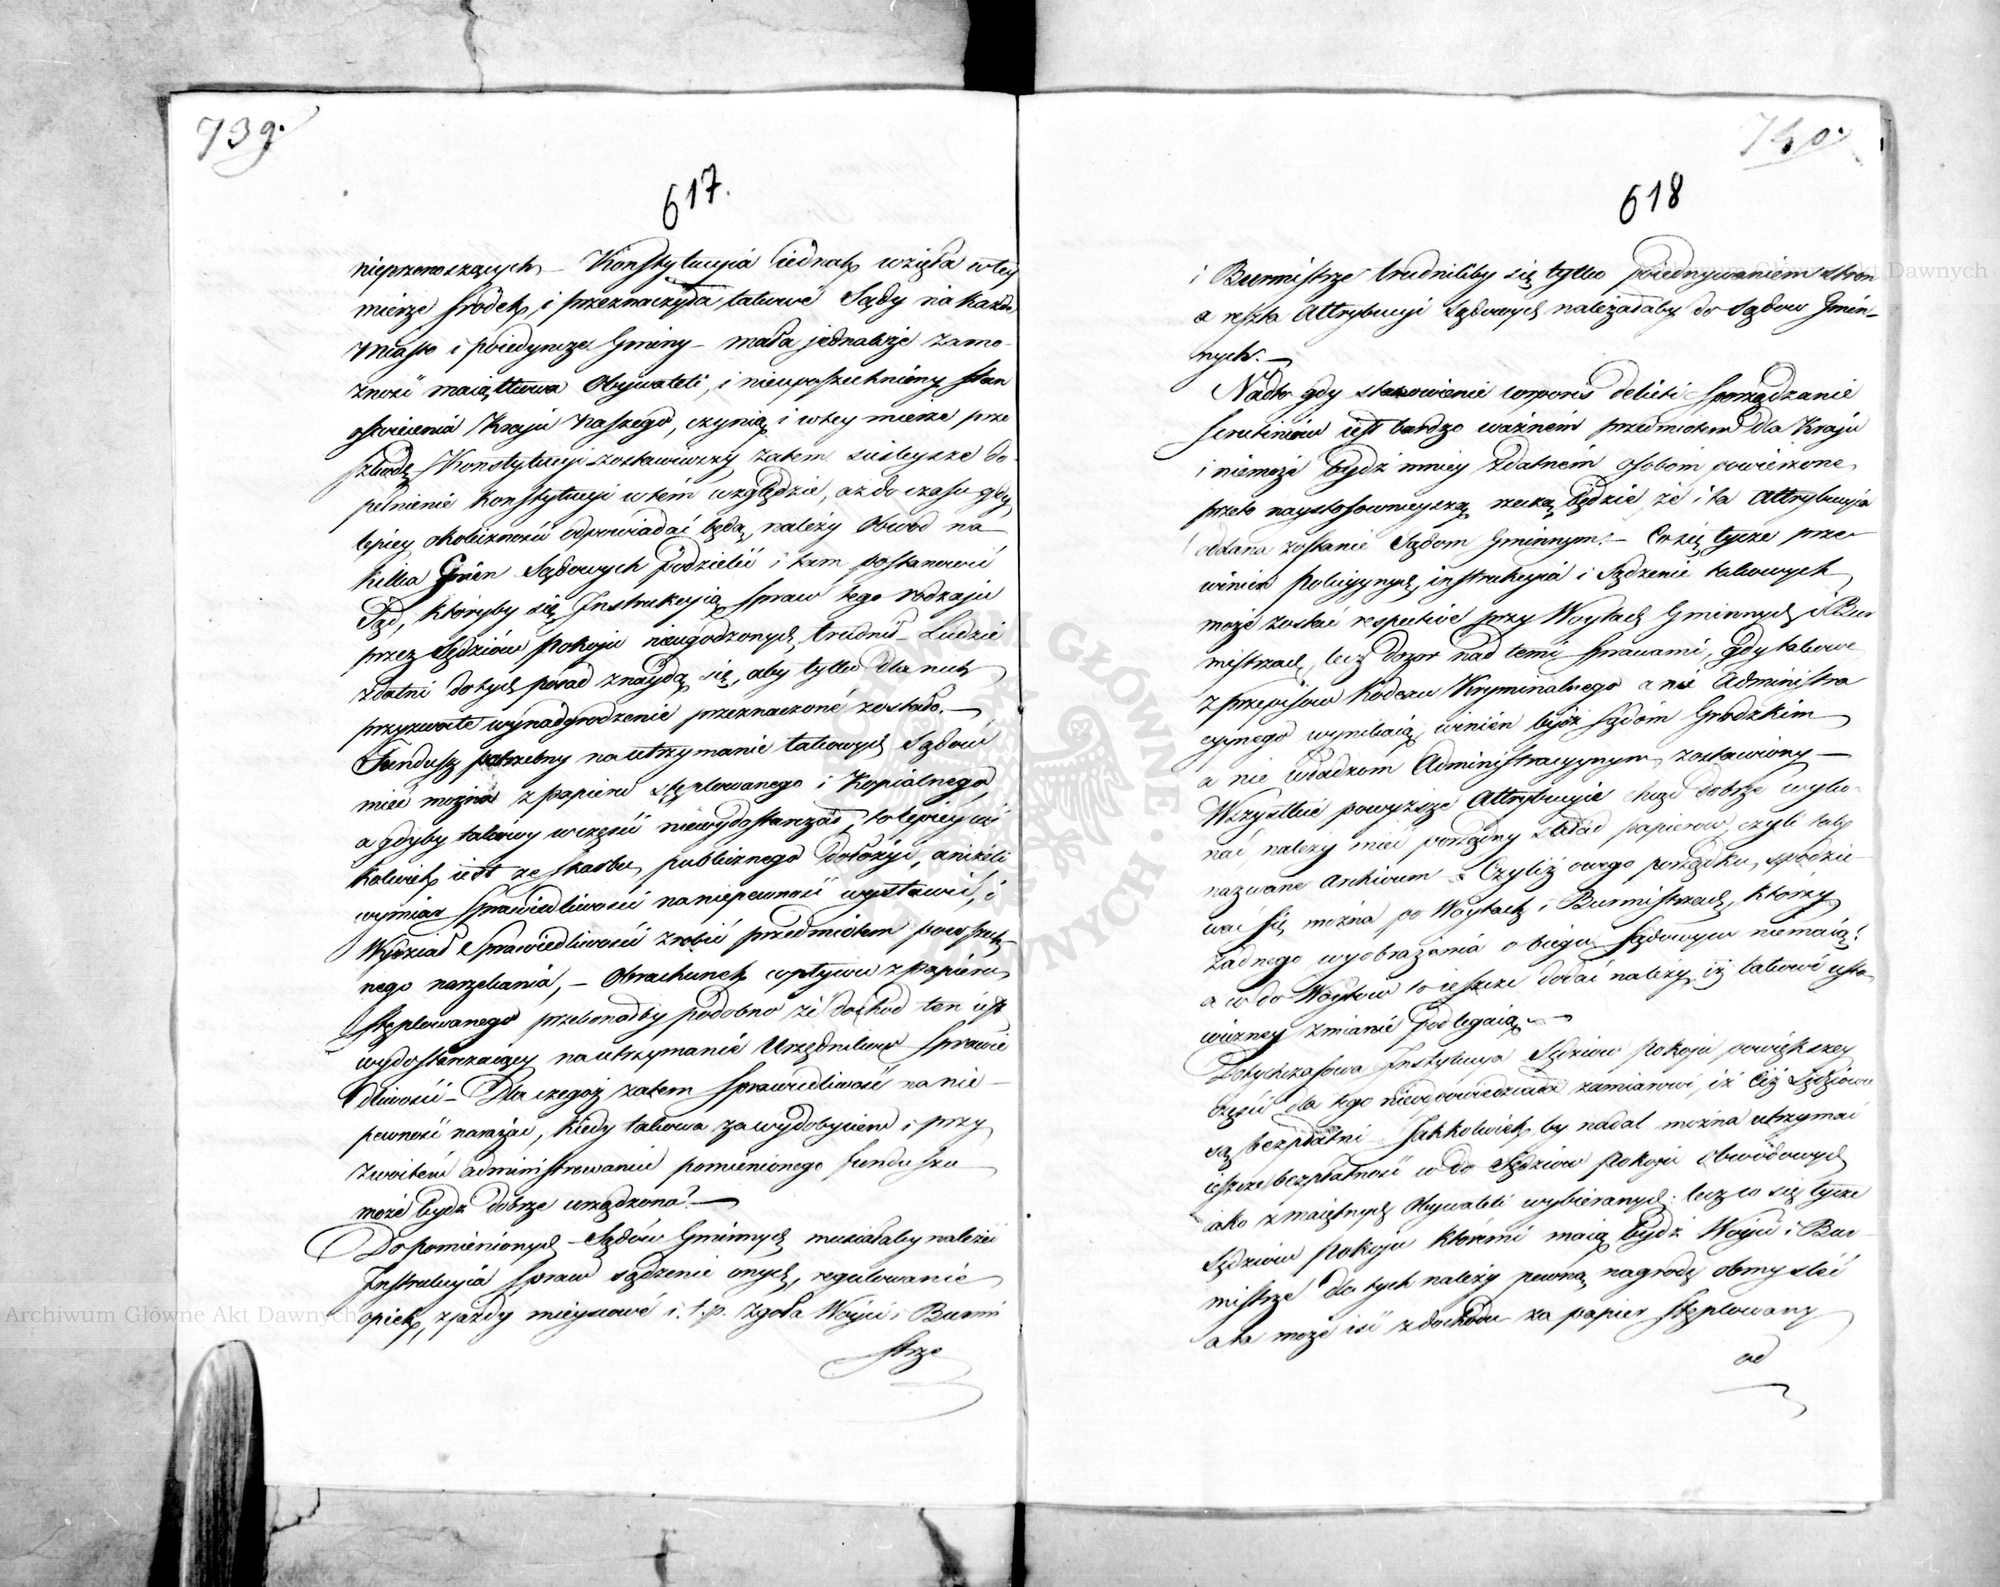 739.
617.
nieprzenoszących – Konstytucyia iednak wzięła w tey
mierze środek, i przeznaczyła takowe Sądy na każde
Miasto i poiedyncze Gminy – mała jednakże zamo-
żność maiątkowa Obywateli, i nieupowszechniony stan
oświecenia Kraju Naszego, czynią i w tey mierze prze
szkodę Konstytucyi zostawiwszy zatem ścisleysze do-
pełnienie Konstytucyi w tém względzie, aż do czasu gdy
lepiey okoliczności odpowiadać będą, należy Obwód na
kilka Gmin Sądowych podzielić i tam postanowić
Sąd, któryby się Instrukcyią spraw tego rodzaju
przez Sędziów Pokoju nieugodzonych trudnił – Ludzie
zdatni do tych posad znaydą się, aby tylko dla nich
przyzwoite wynadgrodzenie przeznaczoné zostało. –
Fundusz potrzebny na utrzymanie takowych Sądów
mieć można z papieru stęplowanego i Kopialnego,
a gdyby takowy w części niewydostarczał, to lepiey iak
kolwiek iest ze skarbu publicznego dołożyć, aniżeli
wymiar sprawiedliwości na niepewność wystawić, i
Wydział Sprawiedliwości zrobić przedmiotem powszech-
nego narzekania, – Obrachunek wpływu z papieru
stęplowanego przekonałby podobno że dochód ten iest
wydostarczaiący na utrzymanie Urzędników Sprawie
dliwości – Dla czegoż zatem Sprawiedliwość na nie –
pewność narażać, kiedy takowa za wydobyciem i przy
zwoitem administrowaniu pomienionego funduszu
może bydz dobrze urządzona? –
Do pomienionych Sądów Gminnych musiałaby należeć
Instrukcyia Spraw sądzenie onych, regulowanie
opiek, zjazdy mieyscowé i. t. p. zgoła Wóyci i Burmi
strze
740.
618
i Burmistrze trudniliby się tylko poiednywaniem stron
a reszta Attrybucyi Sądowych należałaby do Sądow Gmin-
nych. –
Nadto gdy stanowienie corporis delicti sporządzanie
Scrutiniów iest bardzo ważném przedmiotem dla Kraju
i niemoże bydź mniey zdatném osobóm powierzone,
przeto naystosownieyszą rzeczą będzie, że i ta Attrybucyia
oddana zostanie Sądom Gminnym. – Co się tycze prze-
winień Policyynych instrukcyia i Sądzenie takowych
może zostać respective przy Woytach Gminnych i Bur
mistrzach, lecz dozor nad temi sprawami, gdy takowe
z przepisow Kodexu Kryminalnego a nie Administra
cyynego wynikaią, winién bydź Sądóm Grodzkim
a nie Władzom Administracyynym zostawiony –
Wszystkie powyższe Attrybucyie chcąc dobrze wyko-
nać należy mieć porządny skład papierow, czyli tak
nazwane Archiwum – Czyliż owego porządku, spodzie-
wać się można po Woytach i Burmistrzach, którzy
żadnego wyobrażenia o biegu Sądowym niemaią!
a w do Woytow to ieszcze dodać należy, iż takowé usta-
wiczney zmianie podlegaią –
Dotychczasowa Instytucya Sędziow Pokoju powiększey
części dla tego nieodpowiedziała zamiarowi, iż Ciż Sędziowie
są bezpłatni – Jakkolwiek by nadal można utrzymać
ieszcze bezpłatność w do Sędziow Pokoju Obwodowych
iako z maiętnych Obywateli wybieranych; lecz co się tycze
Sędziow Pokoju któremi maią bydź Wóyci i Bur-
mistrze dla tych należy pewną nagrodę obmysleć
a ta może iść z dochodu za papier stęplowany
od